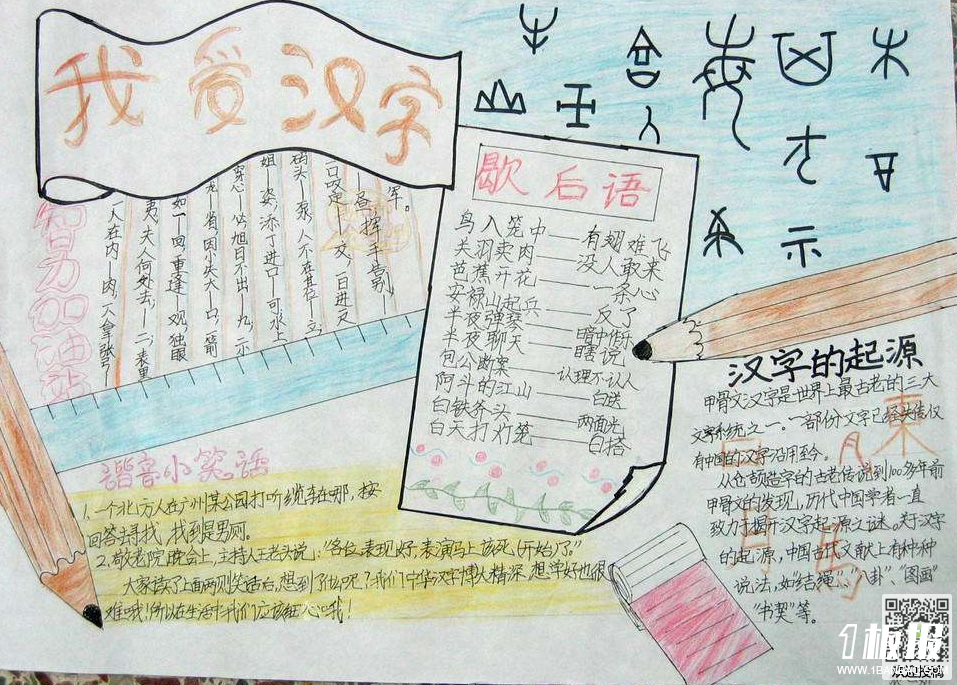 我爱汉字
智力加油站
军。
一昼,挥手告别,
码头一泵,人不在其位一立,
姐一姿,添丁进口一可,水上
如一回,重逢一观,独眼
夷,夫人何处去,一二,表里
一人在内一肉,一人拿张弓
歇后语
鸟入笼中——有翅难飞
关羽卖肉——没人敢来
芭蕉开花——一条心
安禄山起兵——反了
半夜弹琴——暗中作乐
半夜聊天——瞎说
包公断案——认理不认人
阿斗的江山——白送
白铁斧头——两面光
白天打灯笼——白搭
汉字的起源
甲骨文汉字是世界上最古老的三大
文字系统之一。一部份文字已经失传,仅
有中国的汉字沿用至今。
从仓颉造字的古老传说到100多年前
甲骨文的发现,历代中国学者一直
致力于揭开汉字起源之谜。关于汉字
的起源,中国古代文献上有种种
说法,如"结绳"、"八卦"、"图画"
"书契"等。
谐音小笑话
1、一个北方人在广州某公园打听缆车在哪,按
回答去寻找,找到是男厕。
2、敬老院晚会上,主持人王老头说:"各位,表现好,表演马上该死(开始)了。"
大家读了上面两则笑话后,想到了什么呢?我们中华汉字博大精深,想学好也很
难哦!所以在生活中我们应该细心哦!
1板报
WWW.1BANBAO.COM
欢迎投稿